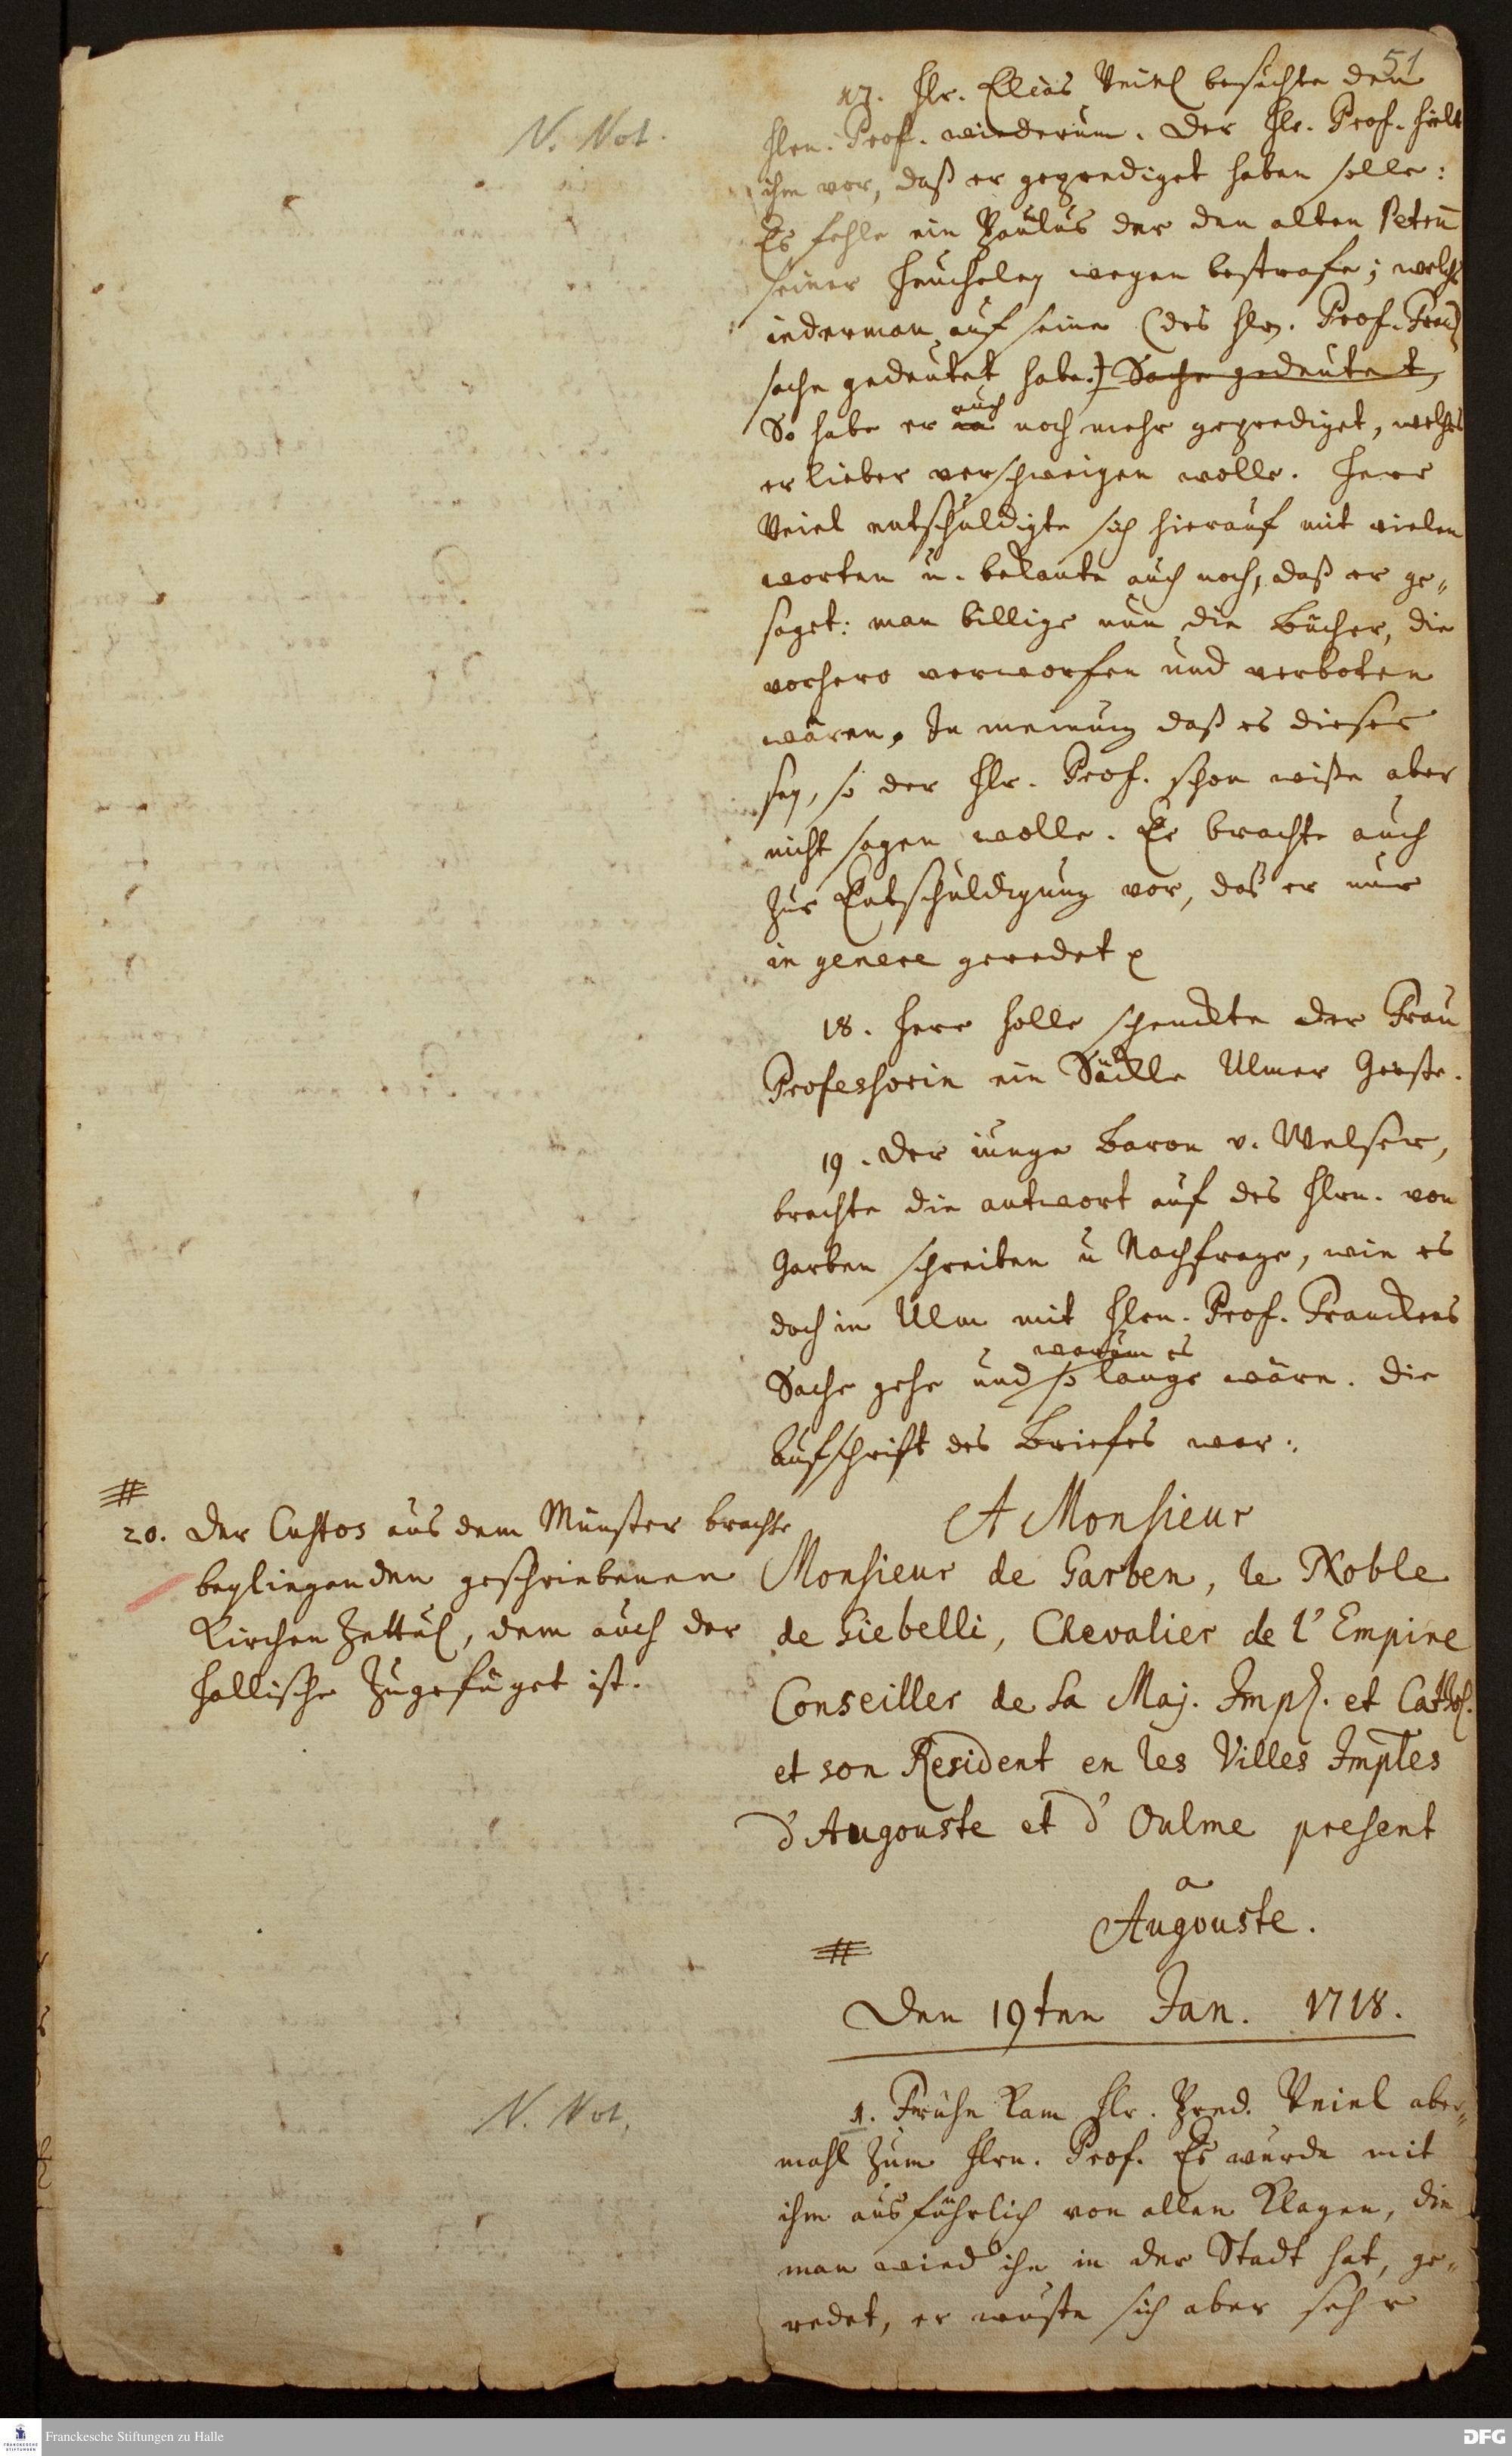 51
17. Hr. Elias Veiel besuchte den
N. Not.
Hrn. Prof. wiederum. Der Hr. Prof. hielt
ihm vor, daß er geprediget haben solle:
Es fehle ein Paulus der den alten Petrū
seiner Heucheley wegen bestrafe; welchs
iederman auf seine (des Hrn. Prof. Franck)
sache gedeutet habe.) Sache gedeutet,
So habe er auch noch mehr geprediget, welches
er lieber verschweigen wolle. Herr
Veiel entschuldigte sich hierauf mit vielen
worten u. bekante auch noch, daß er ge-
saget: man billige nun die Bücher, die
vorhero verworfen und verboten
wären, In meinung daß es dieses
sey, so der Hr. Prof. schon wiße aber
nicht sagen wolle. Er brachte auch
zur Entschuldigung vor, daß er nur
in genere geredet
18. Herr Holle schenckte der Frau
Professorin ein Säckle Ulmer Gerste.
19. Der junge Baron v. Welser,
brachte die antwort auf des Hrn. von
Garben schreiben u Nachfrage, wie es
doch in Ulm mit Hrn. Prof. Franckens
warum es
Sache gehe und so lange wäre. Die
Aufschrift des Briefes war:
A Monsieur
Monsieur de Garben, le Noble
de Giebelli, Chevalier de l'Empire
Conseiller de Sa Maj. Impl. et Cathol.
et son Resident en les Villes Imples
d'Augouste et d'Oulme present
a
Augouste.
#
20. Der Custos aus dem Münster brachte
beyliegenden geschriebenen
Kirchen Zettul, dem auch der
Hallische zugefüget ist.
#
Den 19ten Jan. 1718.
N. Not.
1. Frühe kam Hr. Pred. Veiel aber-
mahl zum Hrn. Prof. Es wurde mit
ihm ausführlich von allen Klagen, die
man wied ihn in der Stadt hat, ge-
redet, er wuste sich aber sehr
Franckesche Stiftungen zu Halle
DFG